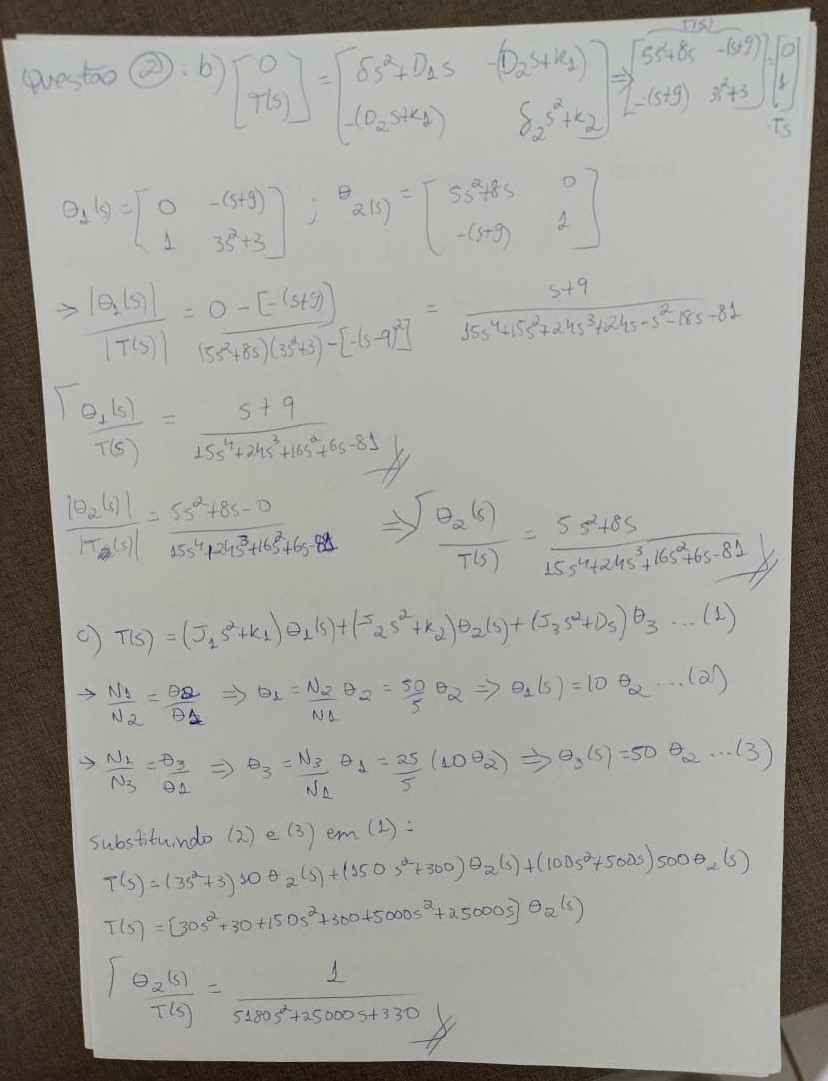 Questão ②: b) [0; T(s)] = [δs²+D₁s -(D₂s+k₁); -(D₂s+k₁) δ₂s²+k₂] ⇒ [5s²+8s -(s+9); -(s+9) 3s²+3] = [0; 1] · Ts
T(s)
θ₁(s) = [0 -(s+9); 1 3s²+3] ; θ₂(s) = [5s²+8s 0; -(s+9) 1]
→ |θ₁(s)|/|T(s)| = 0-[-(s+9)]/(5s²+8s)(3s²+3)-[-(s-9)²] = s+9/15s⁴+15s²+24s³+24s-s²-18s-81
θ₁(s)/T(s) = s+9/15s⁴+24s³+16s²+6s-81
|θ₂(s)|/|T(s)| = 5s²+8s-0/15s⁴+24s³+16s²+6s-81 ⇒ θ₂(s)/T(s) = 5s²+8s/15s⁴+24s³+16s²+6s-81
c) T(s) = (J₁s²+k₁)θ₁(s)+(J₂s²+k₂)θ₂(s)+(J₃s²+Ds)θ₃ ...(1)
→ N₁/N₂ = θ2/θ1 ⇒ θ₁ = N₂/N₁ θ₂ = 50/5 θ₂ ⇒ θ₁(s) = 10 θ₂ ...(2)
→ N₁/N₃ = θ₃/θ1 ⇒ θ₃ = N₃/N₁ θ₁ = 25/5 (10θ₂) ⇒ θ₃(s) = 50 θ₂ ...(3)
substituindo (2) e (3) em (1) =
T(s) = (3s²+3)10 θ₂(s)+(150s²+300)θ₂(s)+(100s²+500s)500θ₂(s)
T(s) = [30s²+30+150s²+300+5000s²+25000s] θ₂(s)
θ₂(s)/T(s) = 1/5180s²+25000s+330